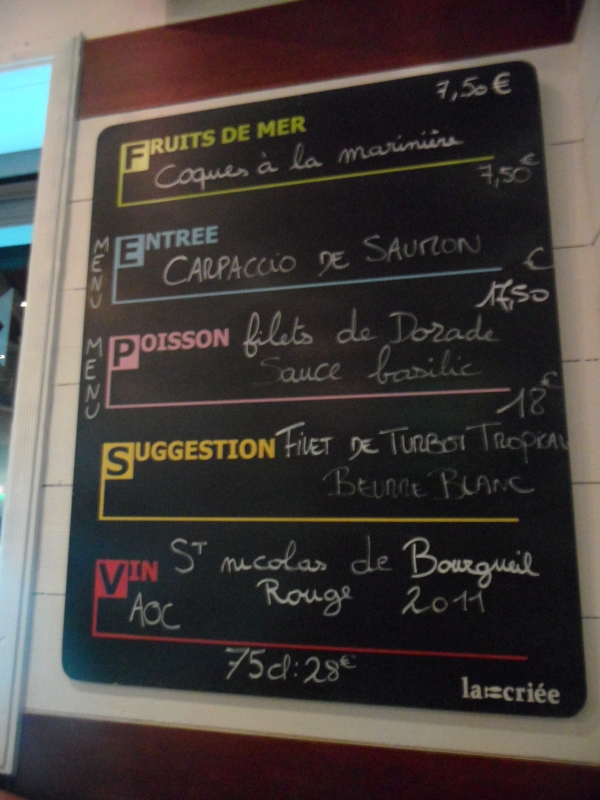 7,50€
FRUITS DE MER
Coques à la marinière
7,50€
MENU
ENTREE
CARPACCIO DE SAUMON
€
17,50
MENU
POISSON filets de Dorade
Sauce basilic
18€
SUGGESTION FILET DE TURBOT TROPICAL
BEURRE BLANC
VIN ST nicolas de Bourgueil
AOC Rouge 2011
75cl:28€
la criée